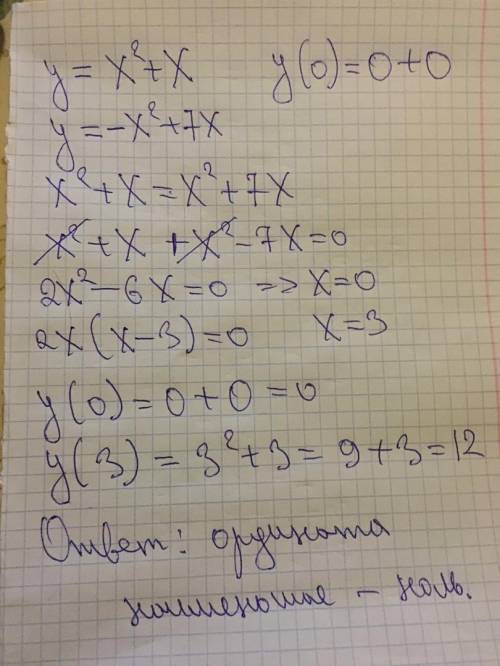 y = x² + x    y(0) = 0 + 0
y = -x² + 7x
x² + x = x² + 7x
x² + x + x² - 7x = 0
2x² - 6x = 0 => x = 0
2x(x - 3) = 0    x = 3
y(0) = 0 + 0 = 0
y(3) = 3² + 3 = 9 + 3 = 12
Ответ: ордината
наименьшая - ноль.